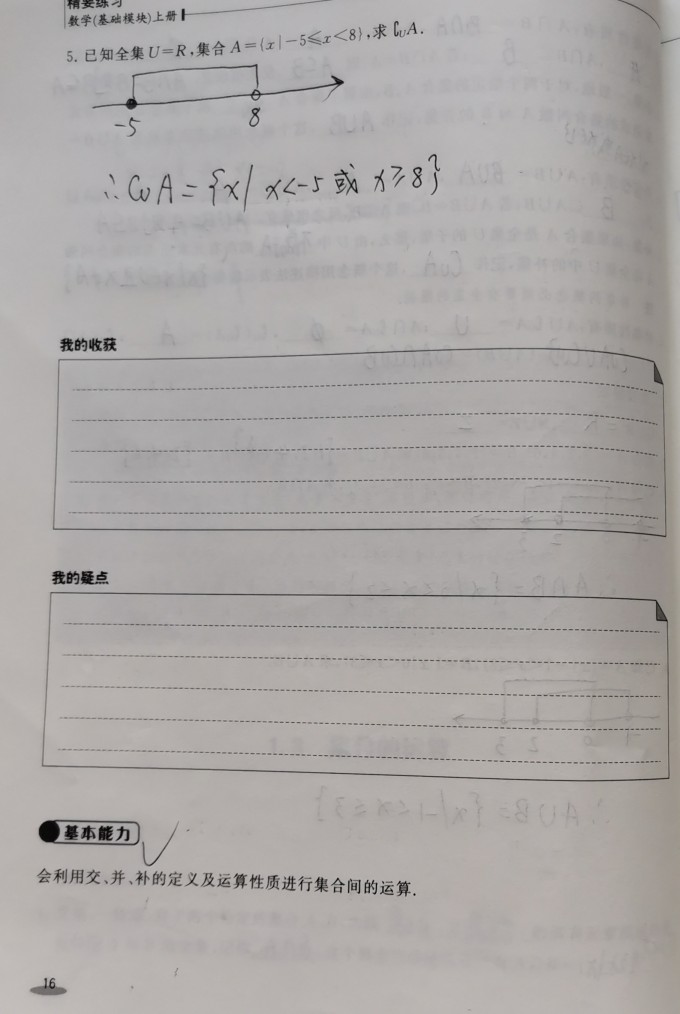 精要练习
数学(基础模块)上册
5. 已知全集U=R,集合A={x|-5≤x<8},求∁UA.
-5 8
∴CuA={x|x<-5或x≥8}
我的收获
我的疑点
基本能力
会利用交、并、补的定义及运算性质进行集合间的运算.
16